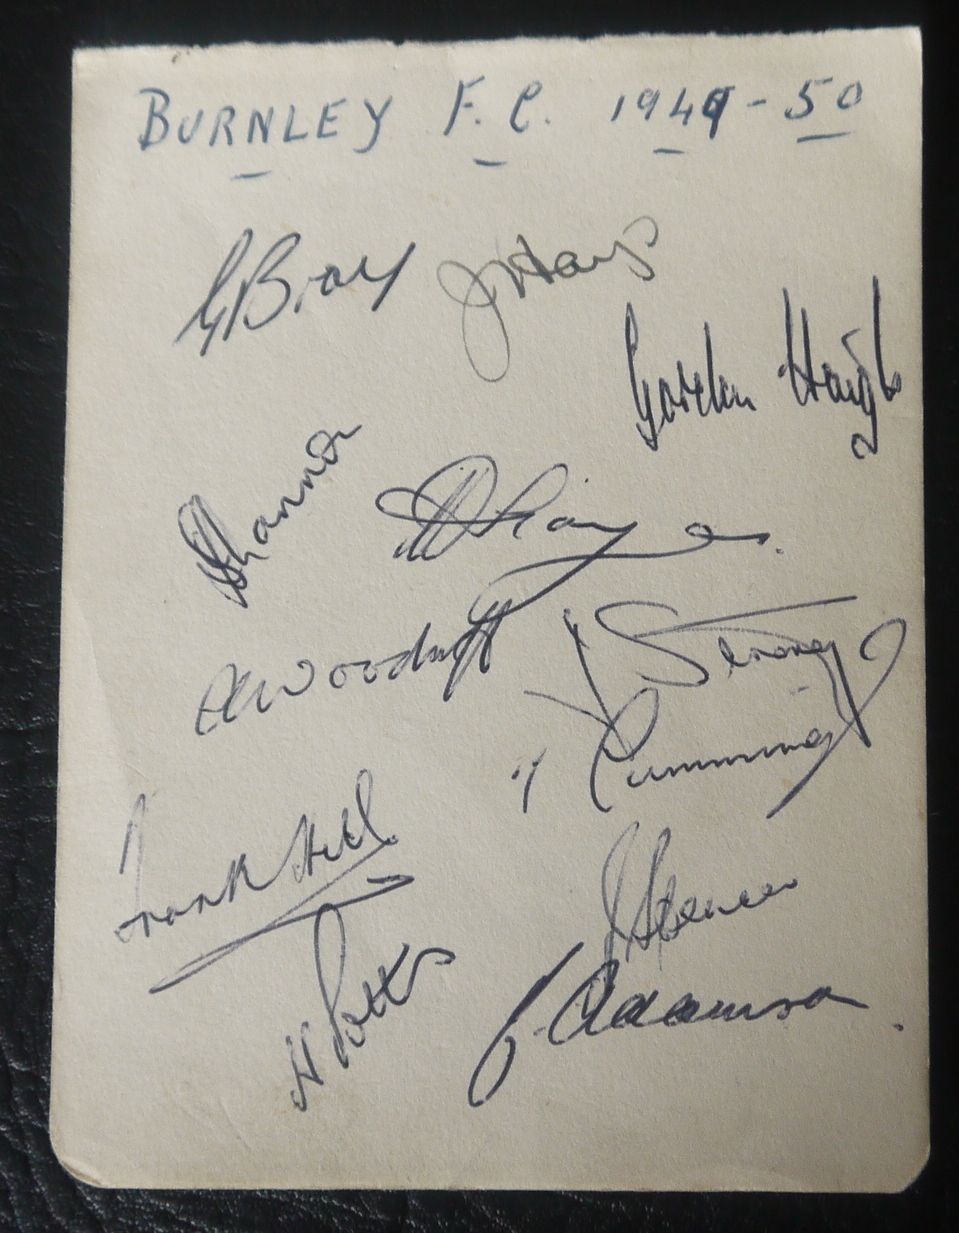 BURNLEY F.C. 1949-50
G Bray
J Hays
Gordon Haigh
Shannon
A Woodruff
Strong
Cummings
Frank Hill
J Spencer
H Potts
J. Adamson.